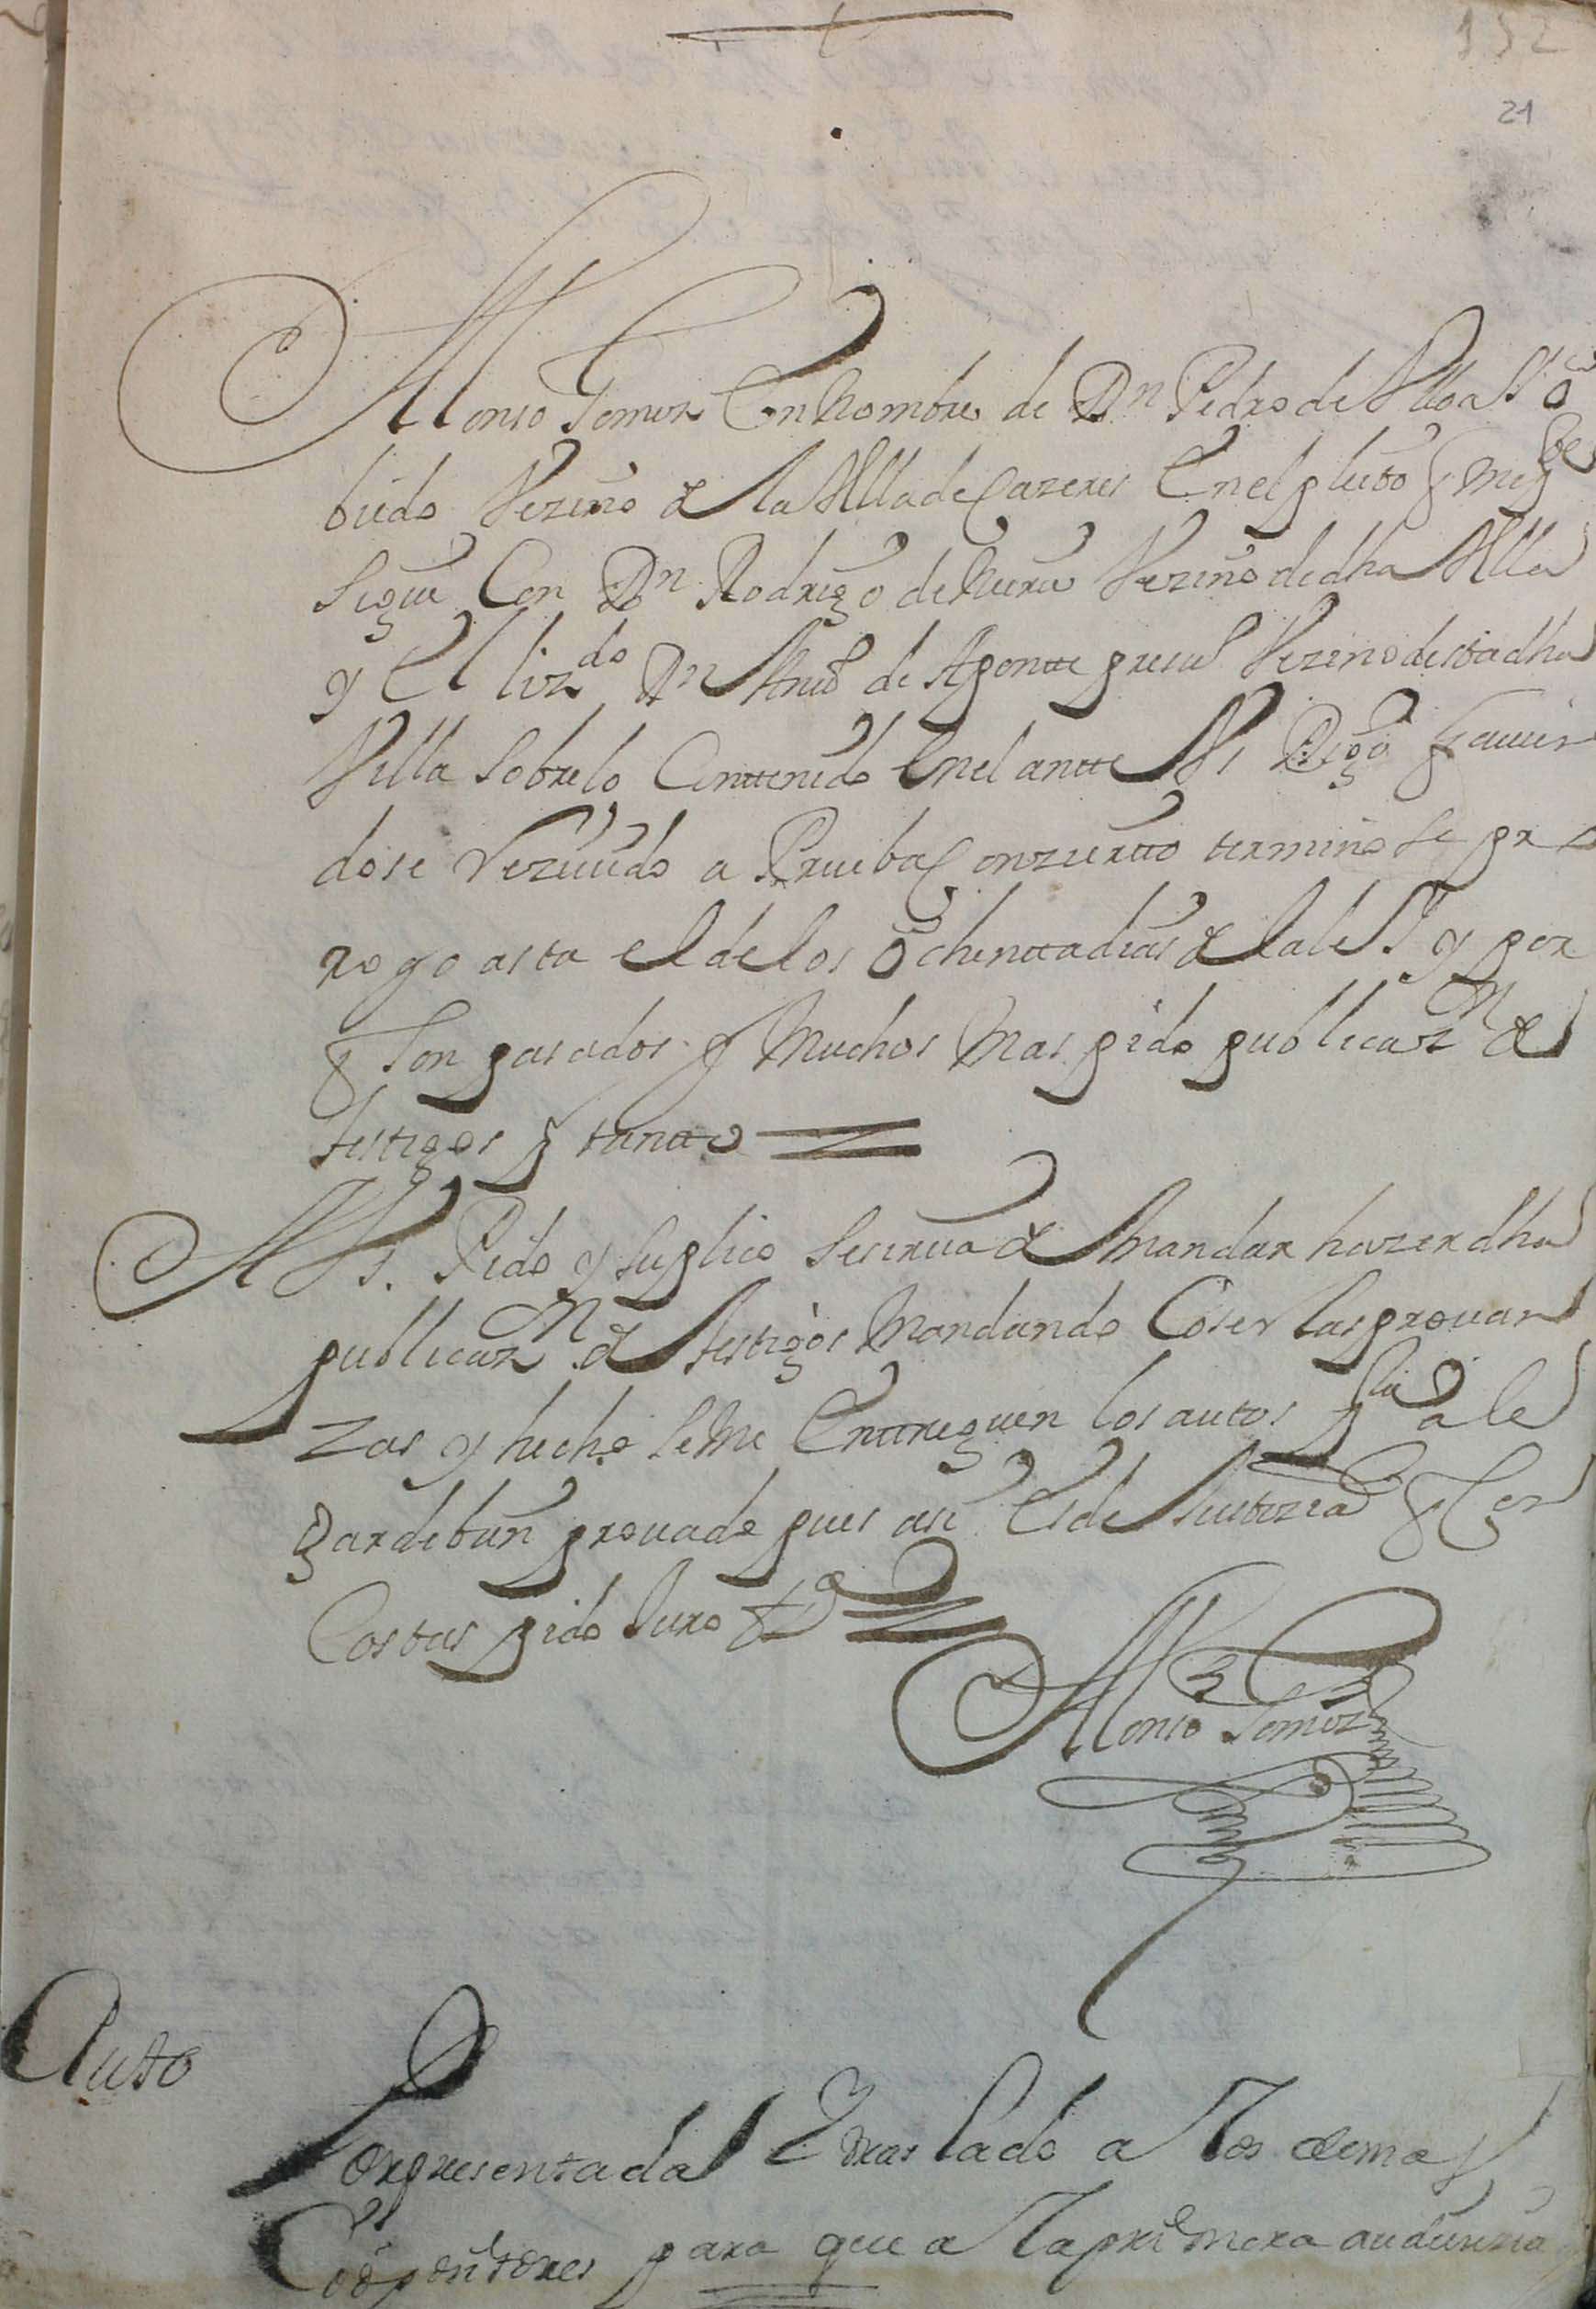 132
21
Alonso Gomez En nombre de Dn Pedro de Ulloa
Vezino de la Villa de Cazeres En el pleito q mi pte
Sigue Con Dn Rodrigo de Vezino de dha Villa
y El lizdo Dn de Aponte presvo Vezino de esta dha
Villa Sobre lo Conttenido En el antte V S Digo q auien
dose rezeuido a Prueba Con zierto termino Se pro
rogo asta el de los ochentta dias de la lei y por
q Son pasados y Muchos Mas pido publicazn de
testigos p tantto =
A V S. Pido y suplico Se sirua de Mandar hazer dha
publicazn de testigos Mandando Coser las prouan
zas y hecho se me Enttreguen los autos pa ale
gar de bien prouado pues asi Es de Justizia q Con
Costas pido Juro
Alonso Gomez
Auto
Por presentada traslado a los demas
Copositores para que a la primera audienzia